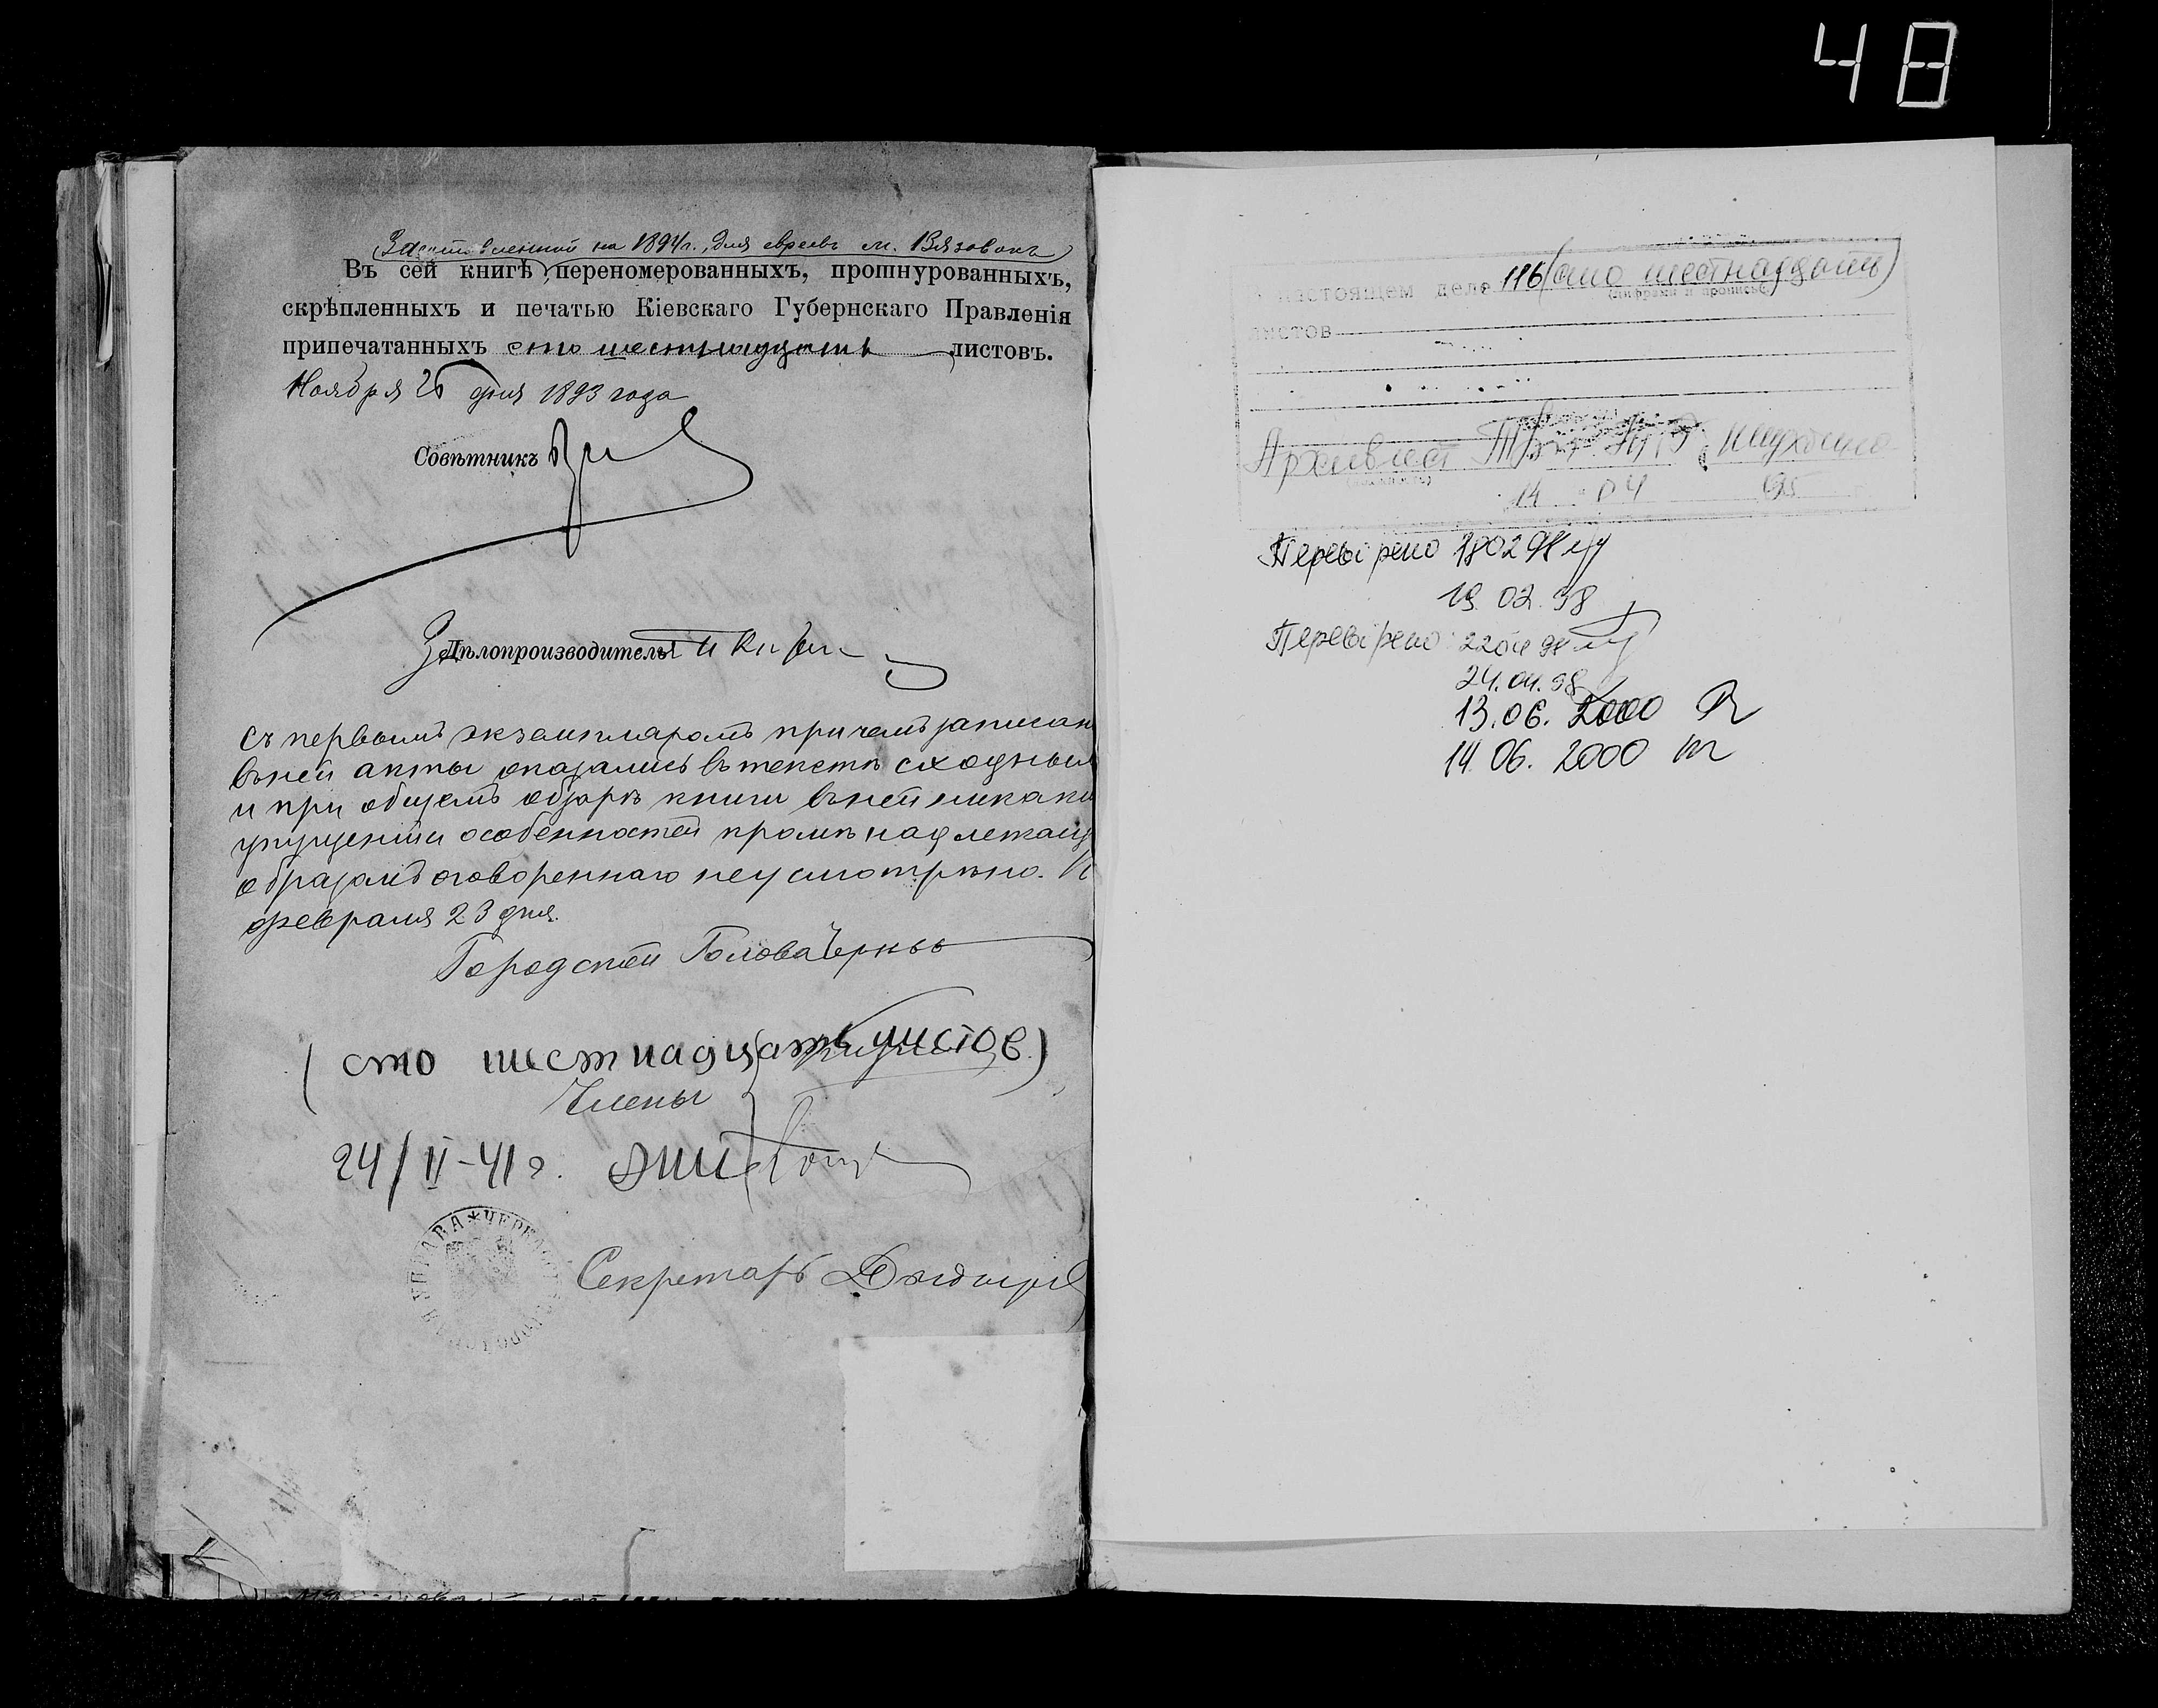 48
на 1894 г., для евреевъ м. Вязовокъ
Въ сей книгѣ, переномерованныхъ, прошнурованныхъ,
скрѣпленныхъ и печатью Кіевскаго Губернскаго Правленія
припечатанныхъ сто шестнадцать листовъ.
Ноября 20 дня 1893 года
Совѣтникъ
За Дѣлопроизводителя
Съ первымъ экземпляромъ причемъ записан
въ ней акты оказались въ текстѣ сходным
и при общемъ обзорѣ книги въ ней никаки
упущеній и особенностей кромѣ надлежащ
образомъ оговореннаго неусмотрѣно.
февраля 23 дня.
Городской Голова
(сто шестнадцать листов)
Члены
24/II-41 г.
УПРАВА * ЧЕРКАС
Секретарь
настоящем деле 116 (сто шестнадцать)
(цифрами и прописью)
листов
Архивист
14 04 95
Перевірено 180298
19.02.98
Перевірено 220498
24.04.98
13.06.2000
14.06.2000